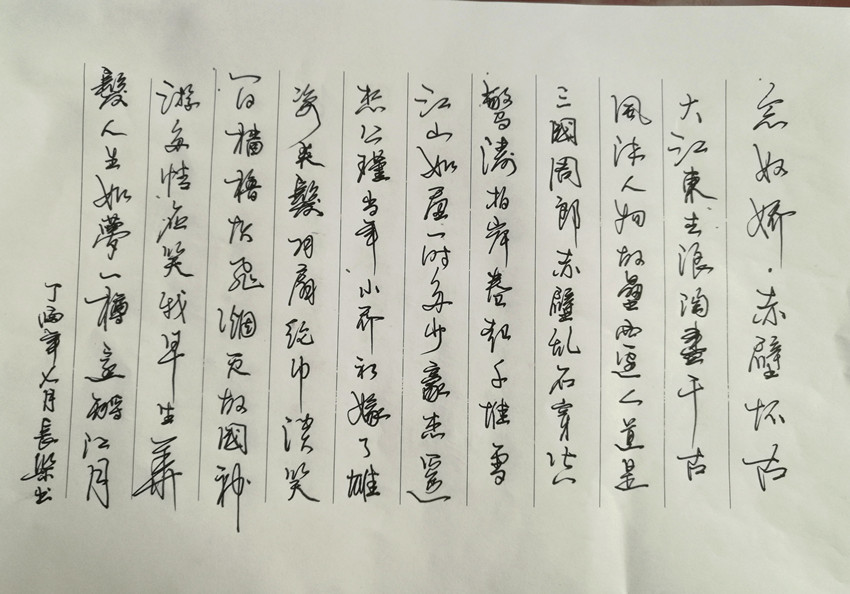 念奴娇·赤壁怀古
大江東去浪淘盡千古
風流人物故壘西邊人道是
三國周郎赤壁乱石穿空
驚濤拍岸卷起千堆雪
江山如畫一時多少豪杰遥
想公瑾当年小乔初嫁了雄
姿英發羽扇纶巾谈笑
间檣櫓灰飛烟灭故國神
游多情应笑我早生華
髮人生如夢一樽还酹江月
丁酉年七月長书